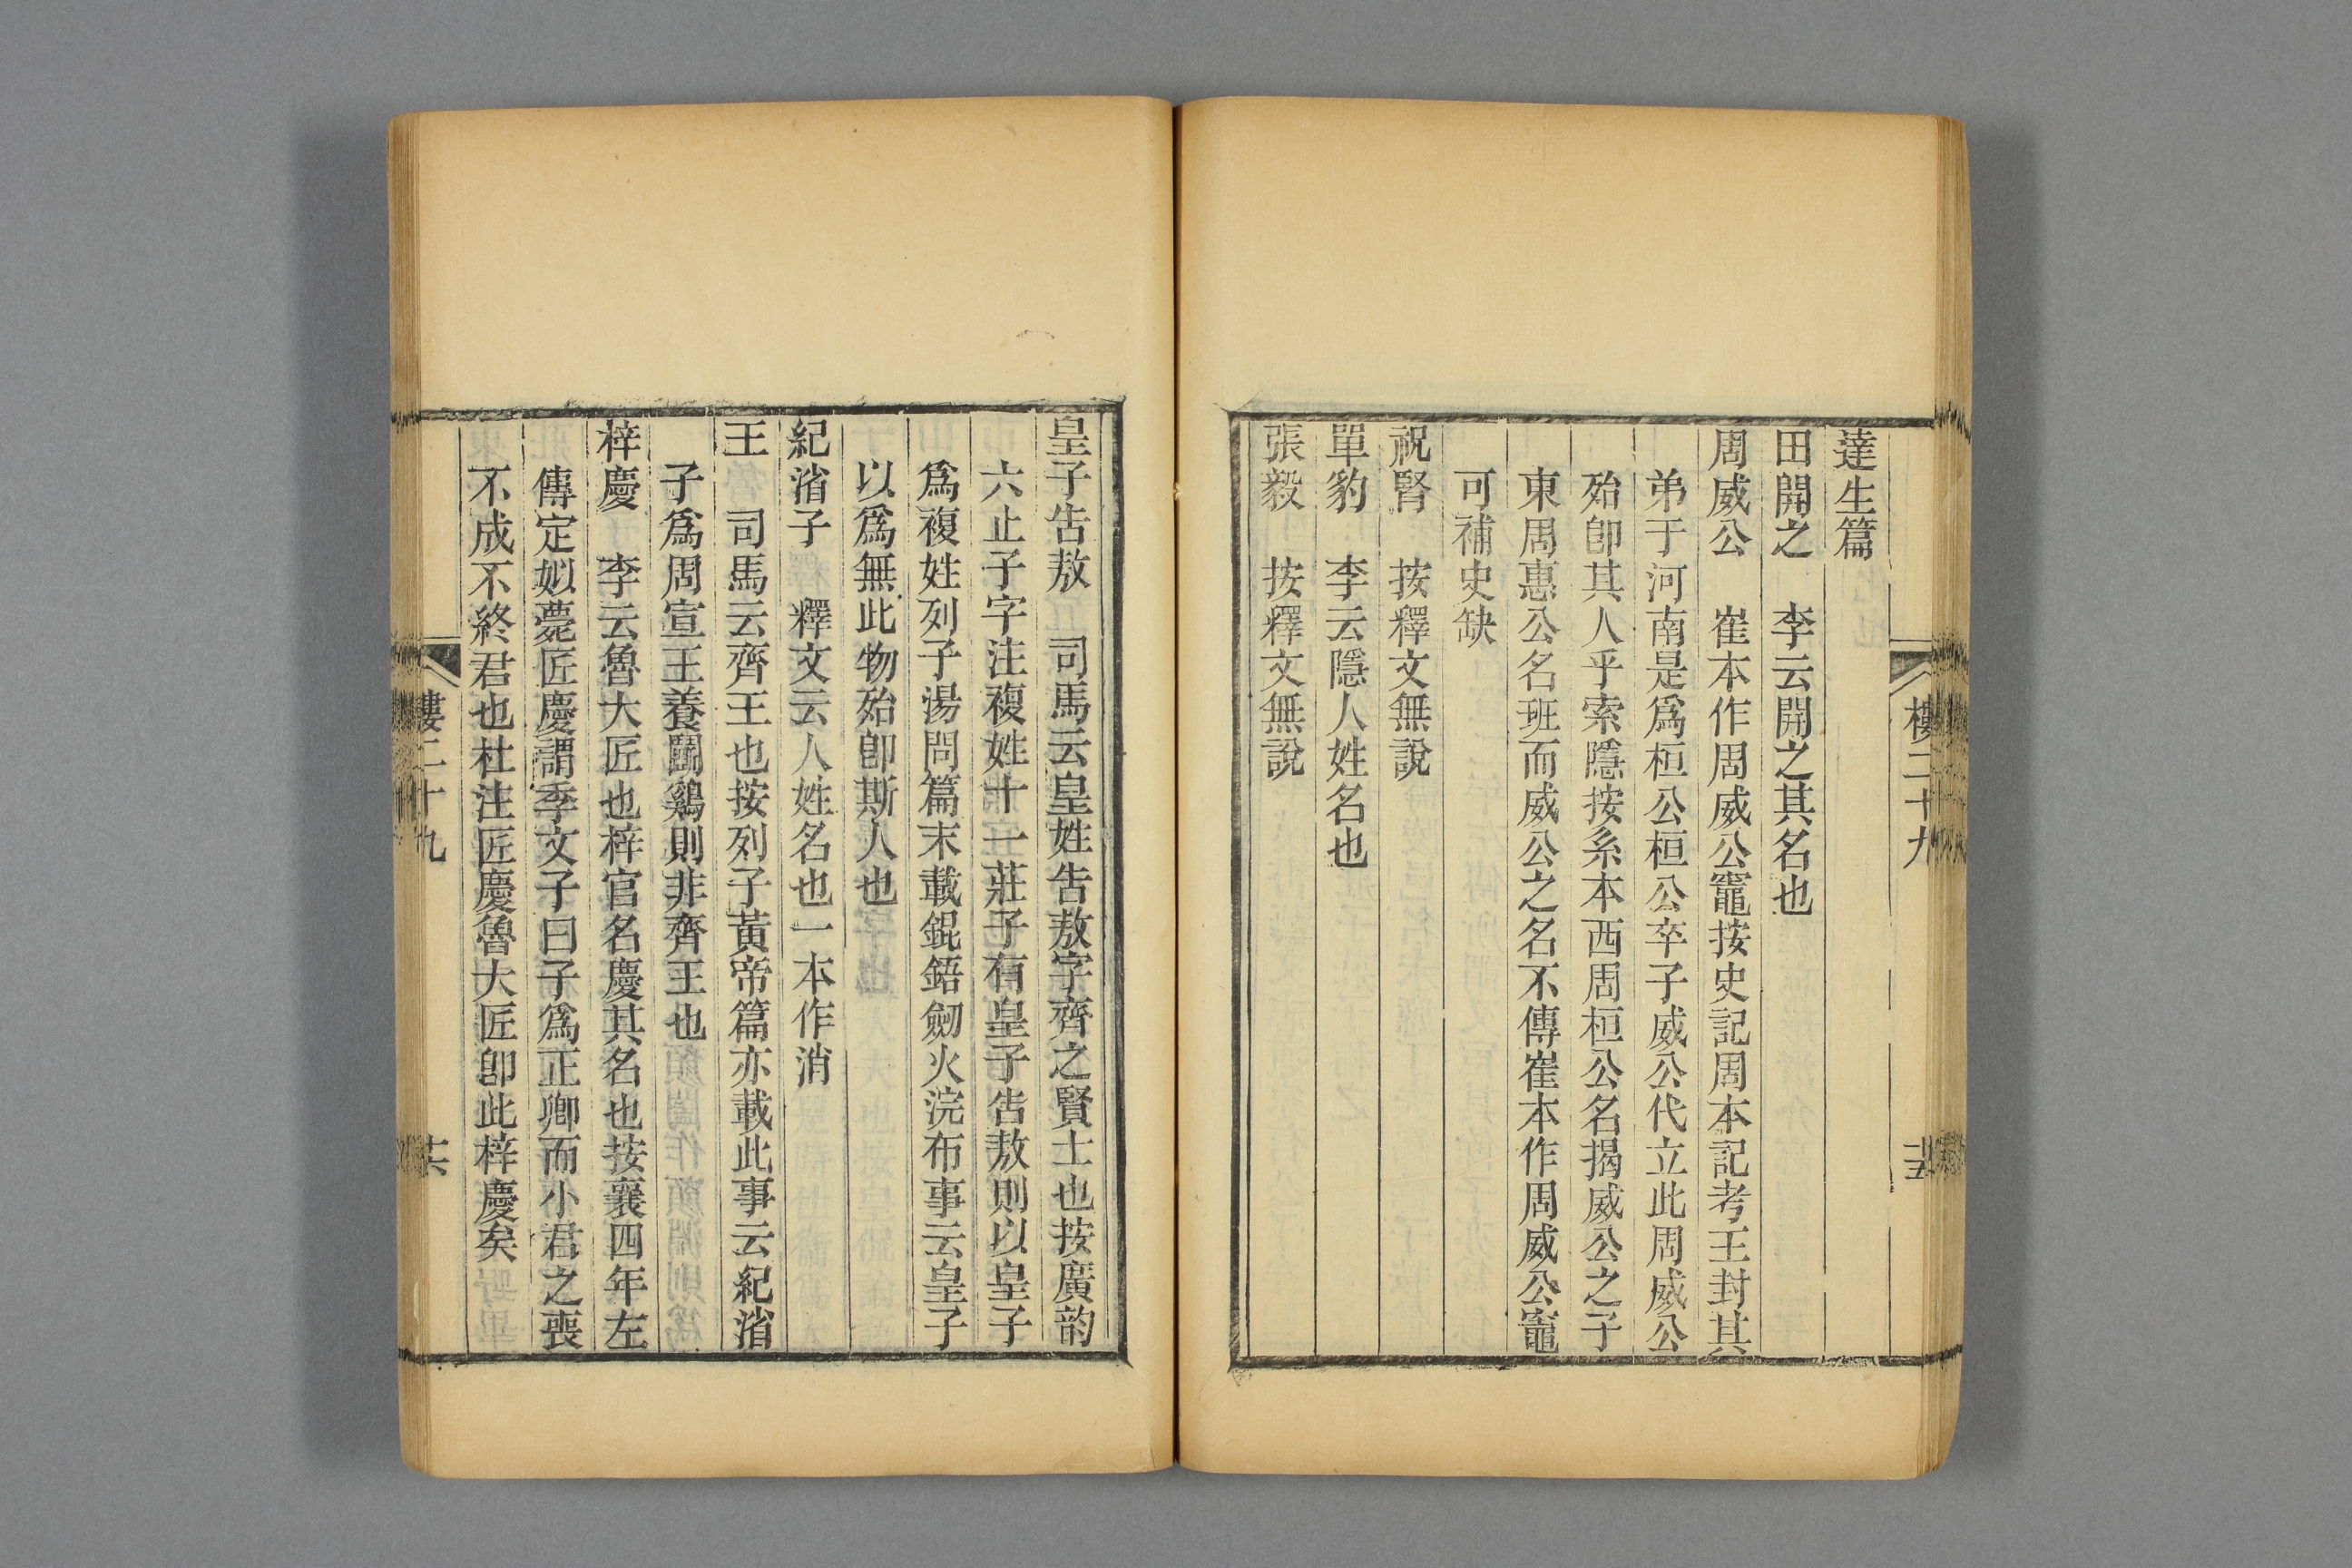 達生篇
田開之　李云開之其名也
周威公　崔本作周威公竈按史記周本記考王封其
弟于河南是爲桓公桓公卒子威公代立此周威公
殆卽其人乎索隱按系本西周桓公名揭威公之子
東周惠公名班而威公之名不傳崔本作周威公竈
可補史缺
祝腎　按釋文無說
單豹　李云隱人姓名也
張毅　按釋文無說
樓二十九
十五
皇子告敖　司馬云皇姓告敖字齊之賢士也按廣韵
六止子字注複姓十一莊子有皇子告敖則以皇子
爲複姓列子湯問篇末載錕鋙劒火浣布事云皇子
以爲無此物殆卽斯人也
紀渻子　釋文云人姓名也一本作消
王　司馬云齊王也按列子黃帝篇亦載此事云紀渻
子爲周宣王養鬭鷄則非齊王也
梓慶　李云魯大匠也梓官名慶其名也按襄四年左
傳定姒薨匠慶謂季文子曰子爲正卿而小君之喪
不成不終君也杜注匠慶魯大匠卽此梓慶矣
樓二十九
十六